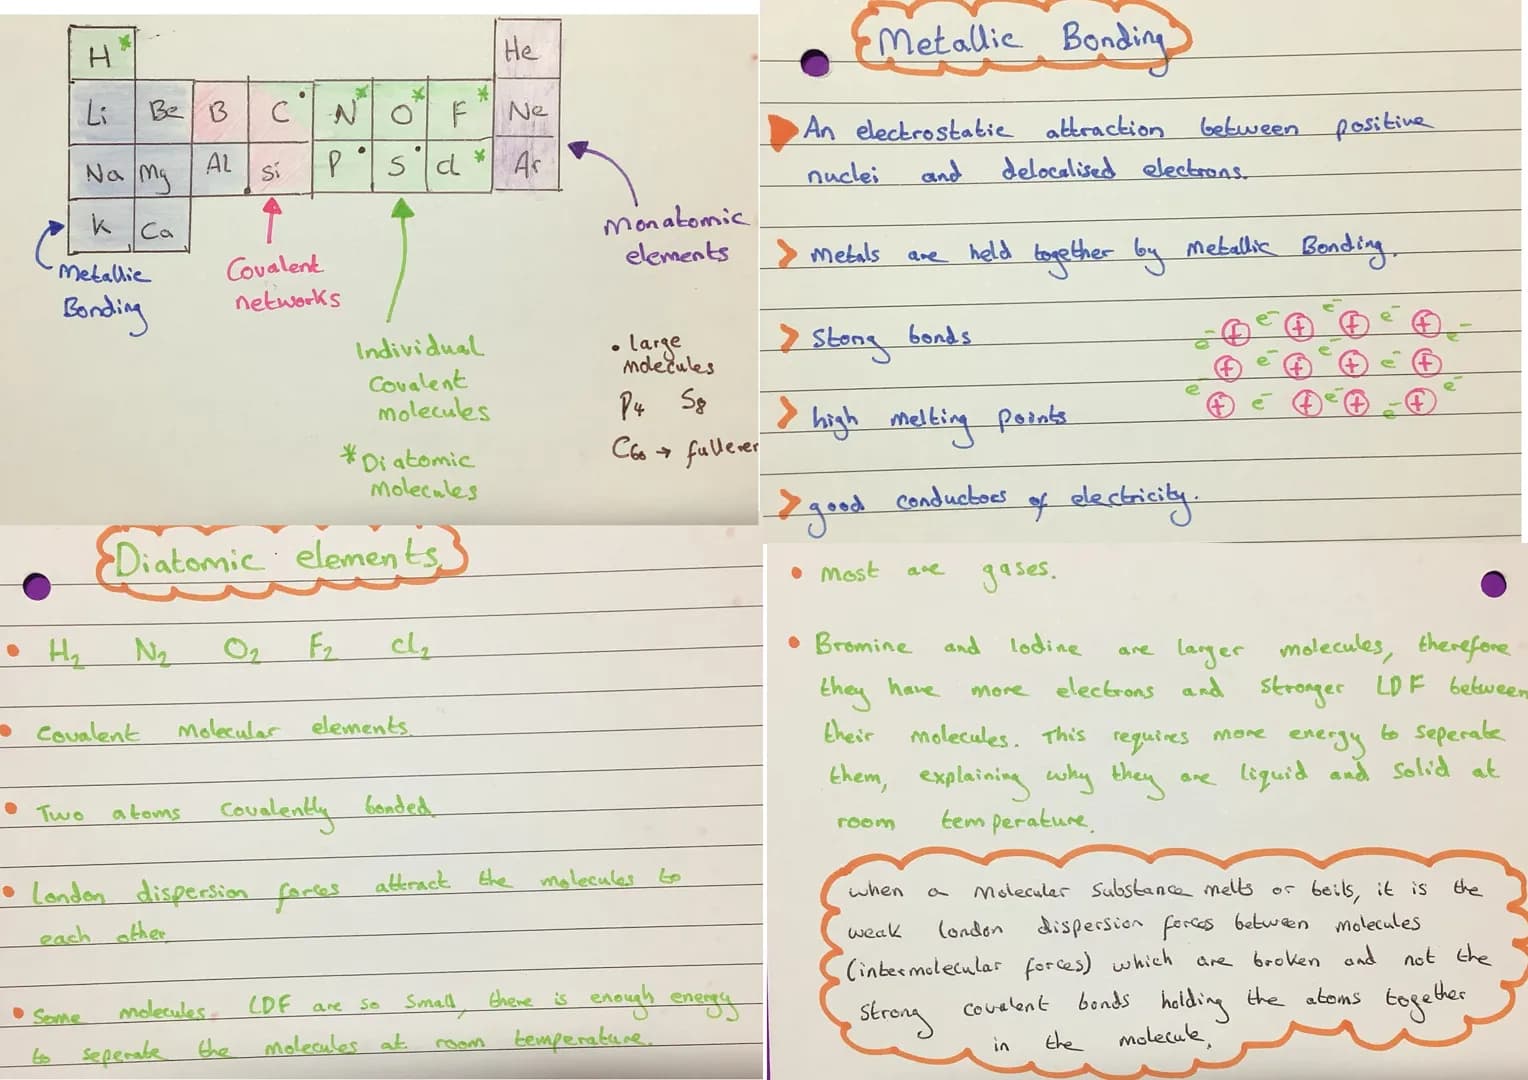 H*
He
Li Be B C• N* O* F* Ne
Na Mg Al Si P• S• Cl* Ar
K Ca
Metallic
Bonding
Covalent
networks
Individual
Covalent
molecules
*Diatomic
Molecules
Monatomic
elements
• large
molecules
P4 S8
C60 → fullerer
Metallic Bonding
An electrostatic attraction between positive
nuclei and delocalised electrons.
> Metals are held together by Metallic Bonding.
> Stong bonds
> high melting points
> good conductors of electricity.
e⁻ + e⁻ + e⁻ + e⁻ + e⁻
+ e⁻ + e⁻ + e⁻ +
e⁻ + e⁻ + e⁻ + e⁻ + e⁻
Diatomic elements
• H₂ N₂ O₂ F₂ Cl₂
• Covalent Molecular elements.
• Two atoms covalently bonded.
• London dispersion forces attract the molecules to
each other
• Some molecules LDF are so small, there is enough energy
to seperate the molecules at room temperature.
• Most are gases.
• Bromine and Iodine are larger molecules, therefore
they have more electrons and stronger LDF between
their molecules. This requires more energy to seperate
them, explaining why they are liquid and solid at
room temperature.
when a Molecular Substance melts or boils, it is the
weak london dispersion forces between molecules
(intermolecular forces) which are broken and not the
strong covalent bonds holding the atoms together
in the molecule.